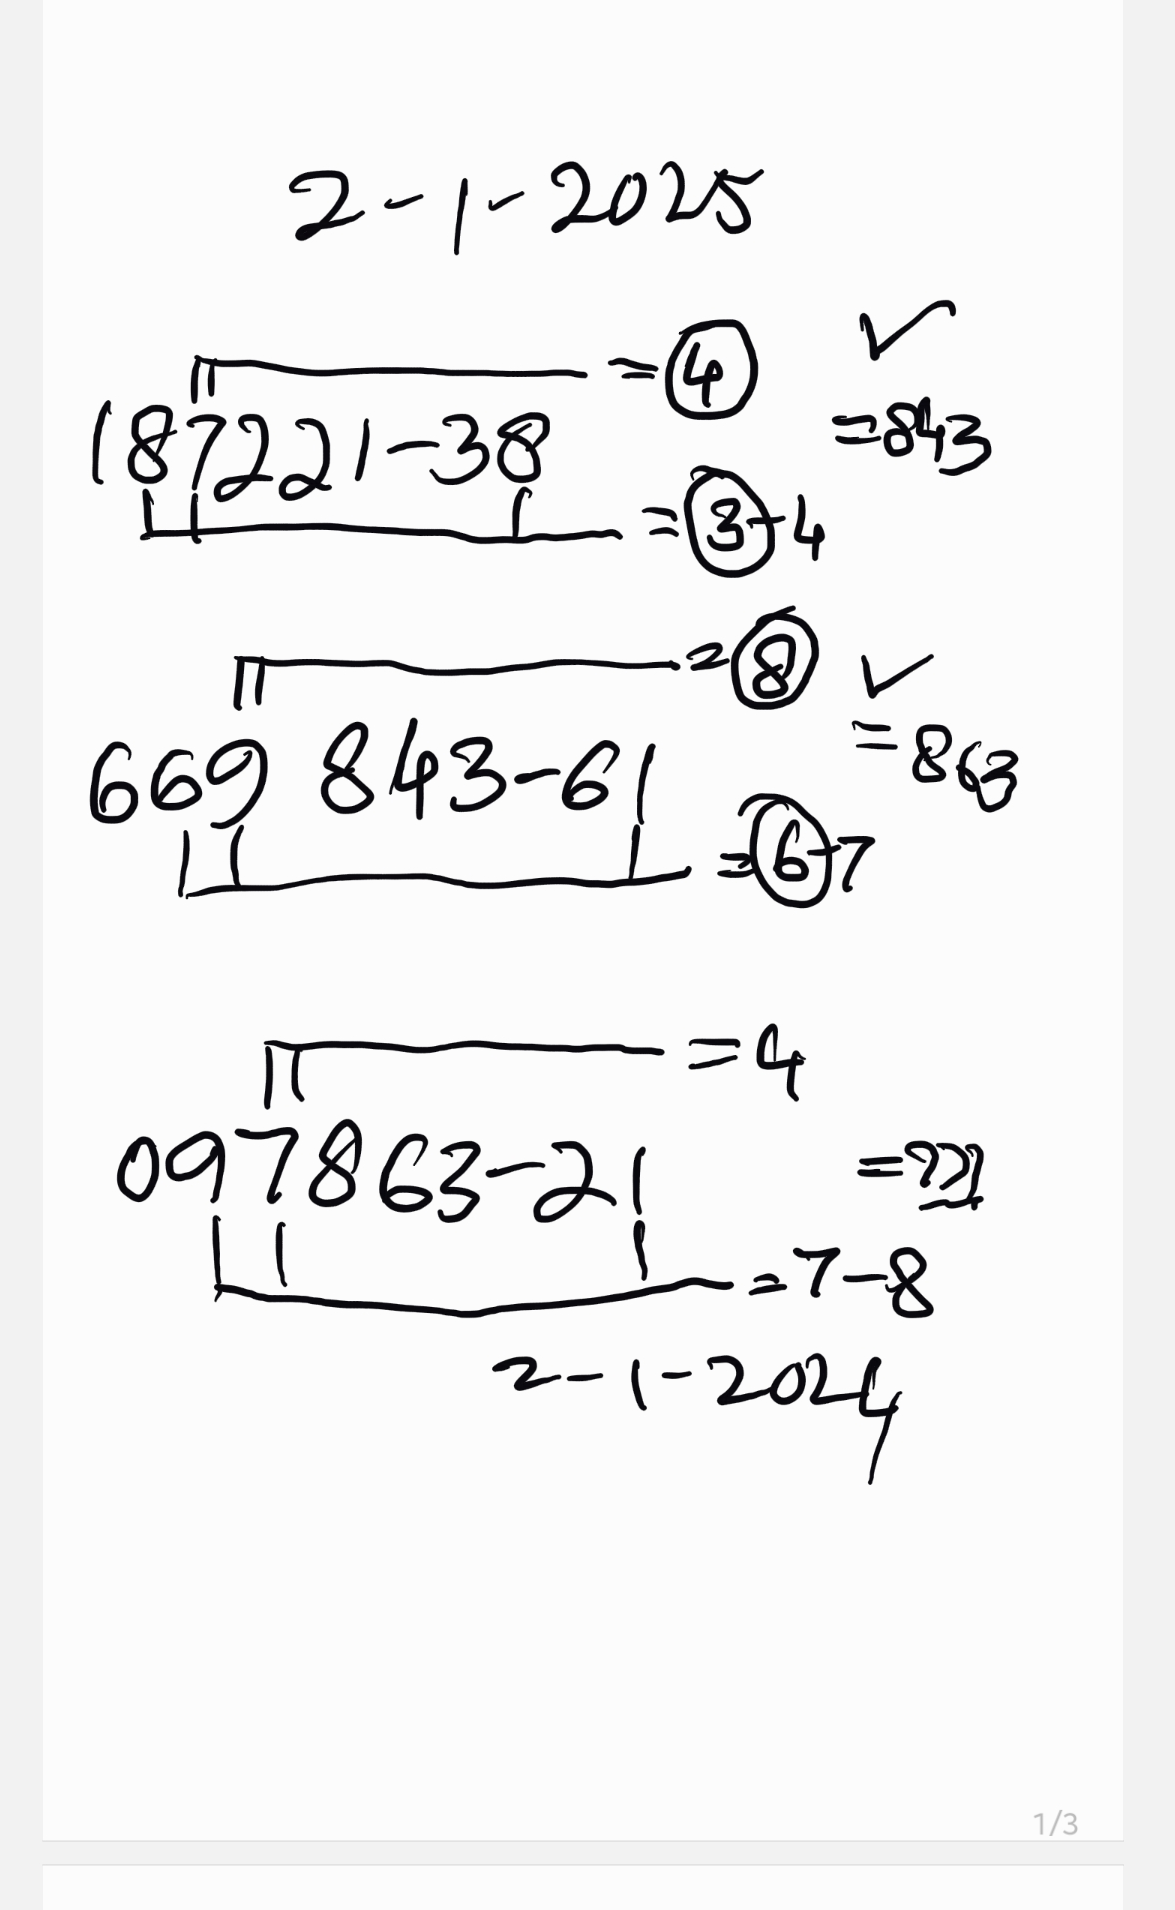 2-1-2025
=4 ✓
187221-38 =843
=3-4
=8 ✓
669 843-61 =863
=6-7
=4
097863-21 =???
=7-8
2-1-2024
1/3